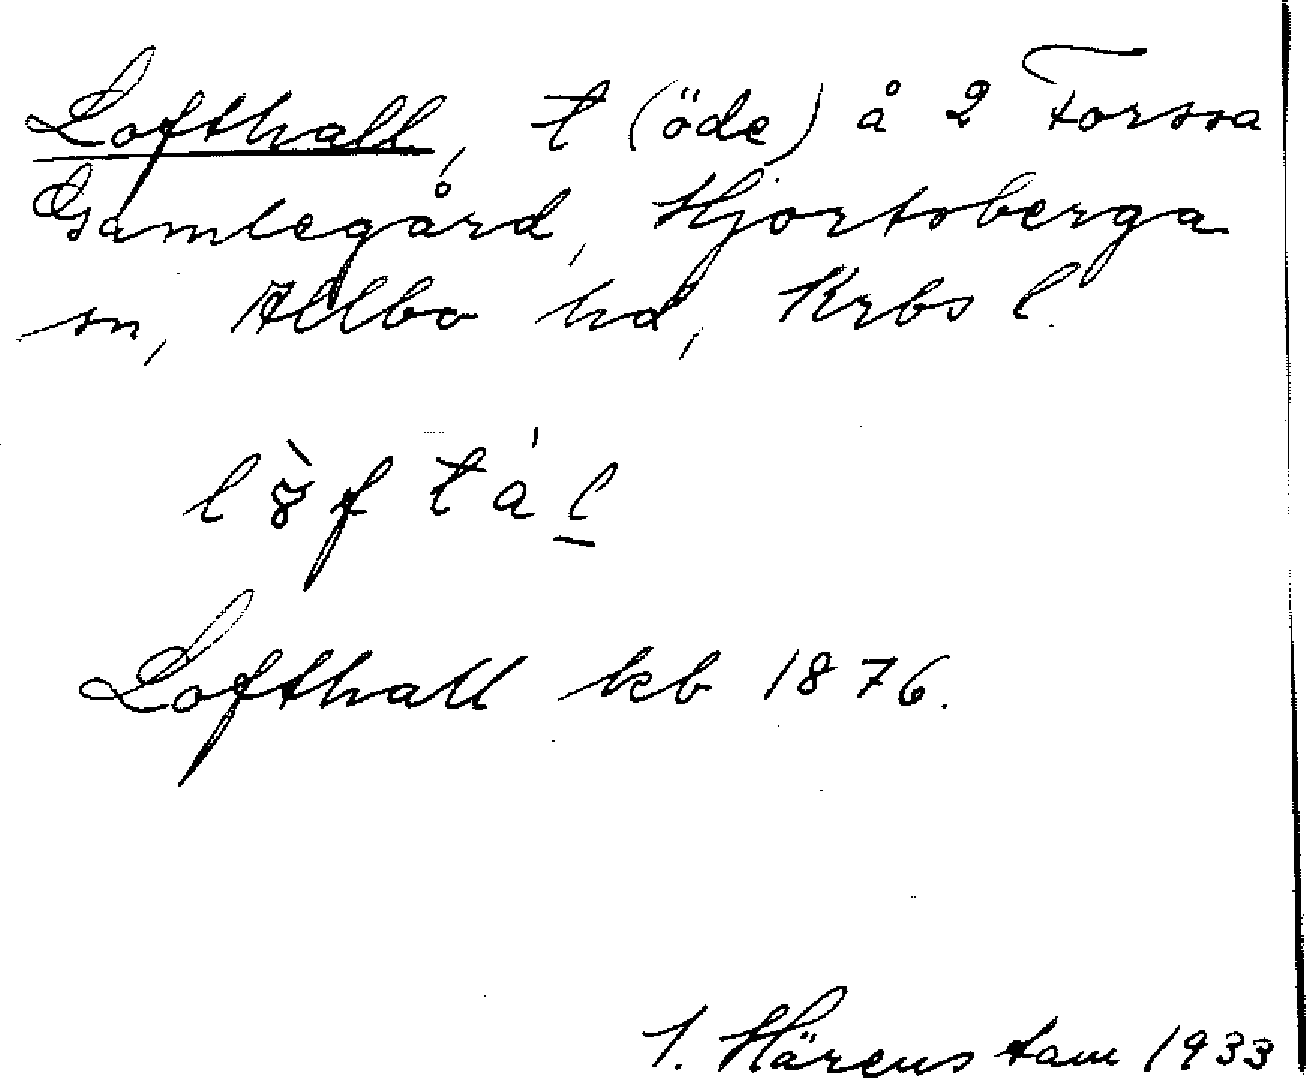 Lofthall, t (öde) å 2 Forssa
Gamlegård, Hjortsberga
sn, Allbo hd, Krbs l.
lòftál
Lofthall kb 1876.
J. Härenstam 1933